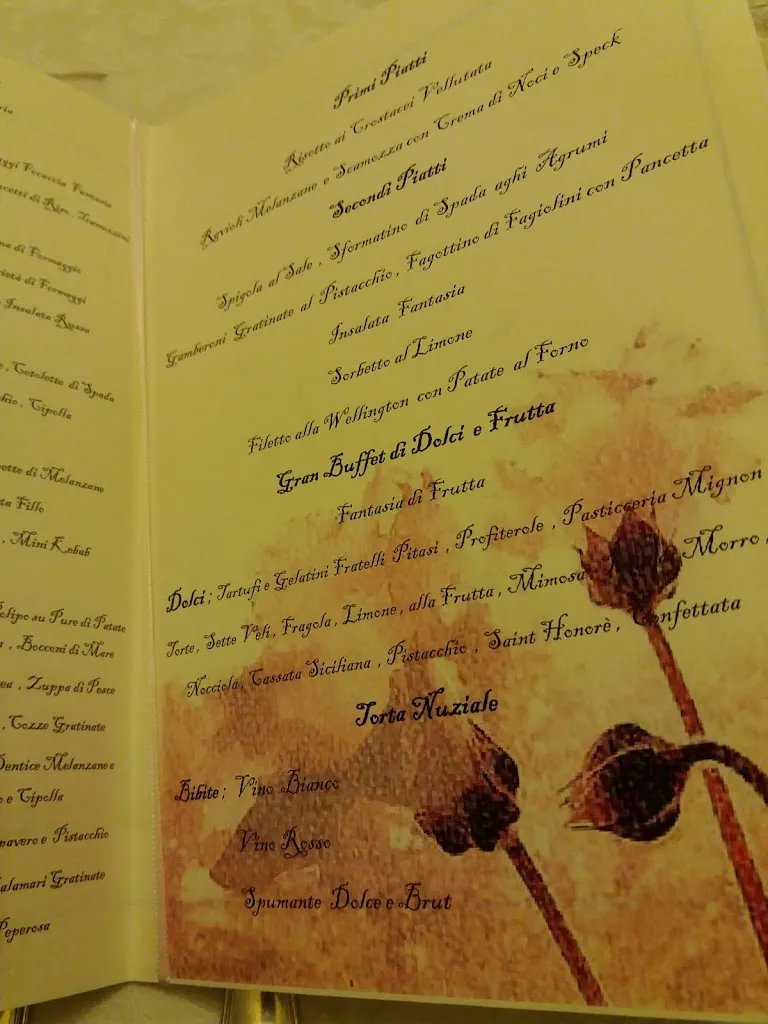 ria
ggi Focaccia Fantasia
ncetti di Riso, Tramezzini
di Formaggio
rietà di Formaggi
Insalata Russa
, Cotolette di Spada
, Cipolla
ette di Melanzane
ta Fillo
, Mini Kebab
Polipo su Pure di Patate
, Bocconi di Mare
ea , Zuppa di Pesce
, Cozze Gratinate
Dentice Melanzane e
o e Cipolla
papavero e Pistacchio
Calamari Gratinate
Peperosa
Primi Piatti
Risotto ai Crostacei Vellutata
Ravioli Melanzane e Scamozza con Crema di Noci e Speck
Secondi Piatti
Spigola al Sale , Sformatino di Spada aghi Agrumi
Gamberoni Gratinate al Pistacchio , Fagottino di Fagiolini con Pancetta
Insalata Fantasia
Sorbetto al Limone
Filetto alla Wellington con Patate al Forno
Gran Buffet di Dolci e Frutta
Fantasia di Frutta
Dolci ; Tartufi e Gelatini Fratelli Pitasi , Profiterole , Pasticceria Mignon
Torte, Sette Veli, Fragola, Limone, alla Frutta, Mimosa Morro ,
Nocciola, Cassata Siciliana , Pistacchio , Saint Honorè , Confettata
Torta Nuziale
Bibite ; Vino Bianco
Vino Rosso
Spumante Dolce e Brut